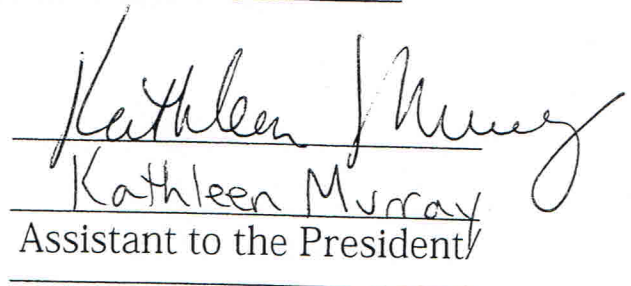 Kathleen Murray
Kathleen Murray
Assistant to the President